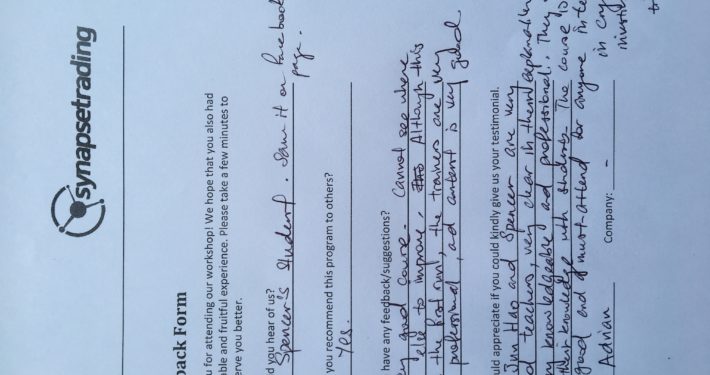 synapsetrading
back Form
u for attending our workshop! We hope that you also had
able and fruitful experience. Please take a few minutes to
erve you better.
d you hear of us?
Spencer's student. Saw it on face book
page.
you recommend this program to others?
Yes.
have any feedback/suggestions?
y good course. Cannot see where
else to improve. Although this
the first run, the trainers are very
professional, ad content is very good
uld appreciate if you could kindly give us your testimonial.
Jun Hao and Spencer are very
d teachers, very clear in their explanation
y knowledgeable and professional. They
their knowledge with students. The course is
good and a must-attend for anyone inte
in cry
investi
Adrian
Company: -